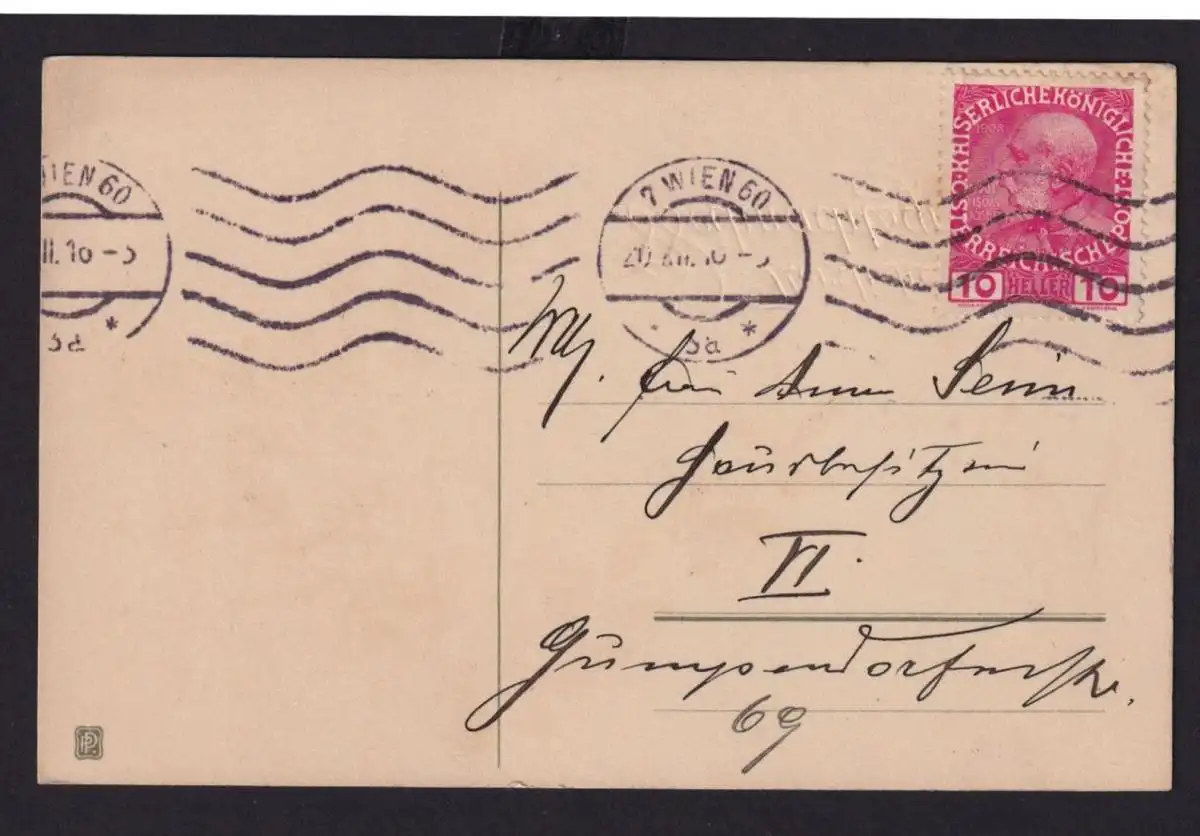 WIEN 60
II. 16 - 5
7 WIEN 60
20. XII. 16 - 5
*
*
KAISERLICHE KÖNIGLICHE
ÖSTERREICHISCHE POST
1908
10 HELLER 10
Frau Anna
Hausbesitzerin
VI.
Gumpendorferstr.
69
PP.